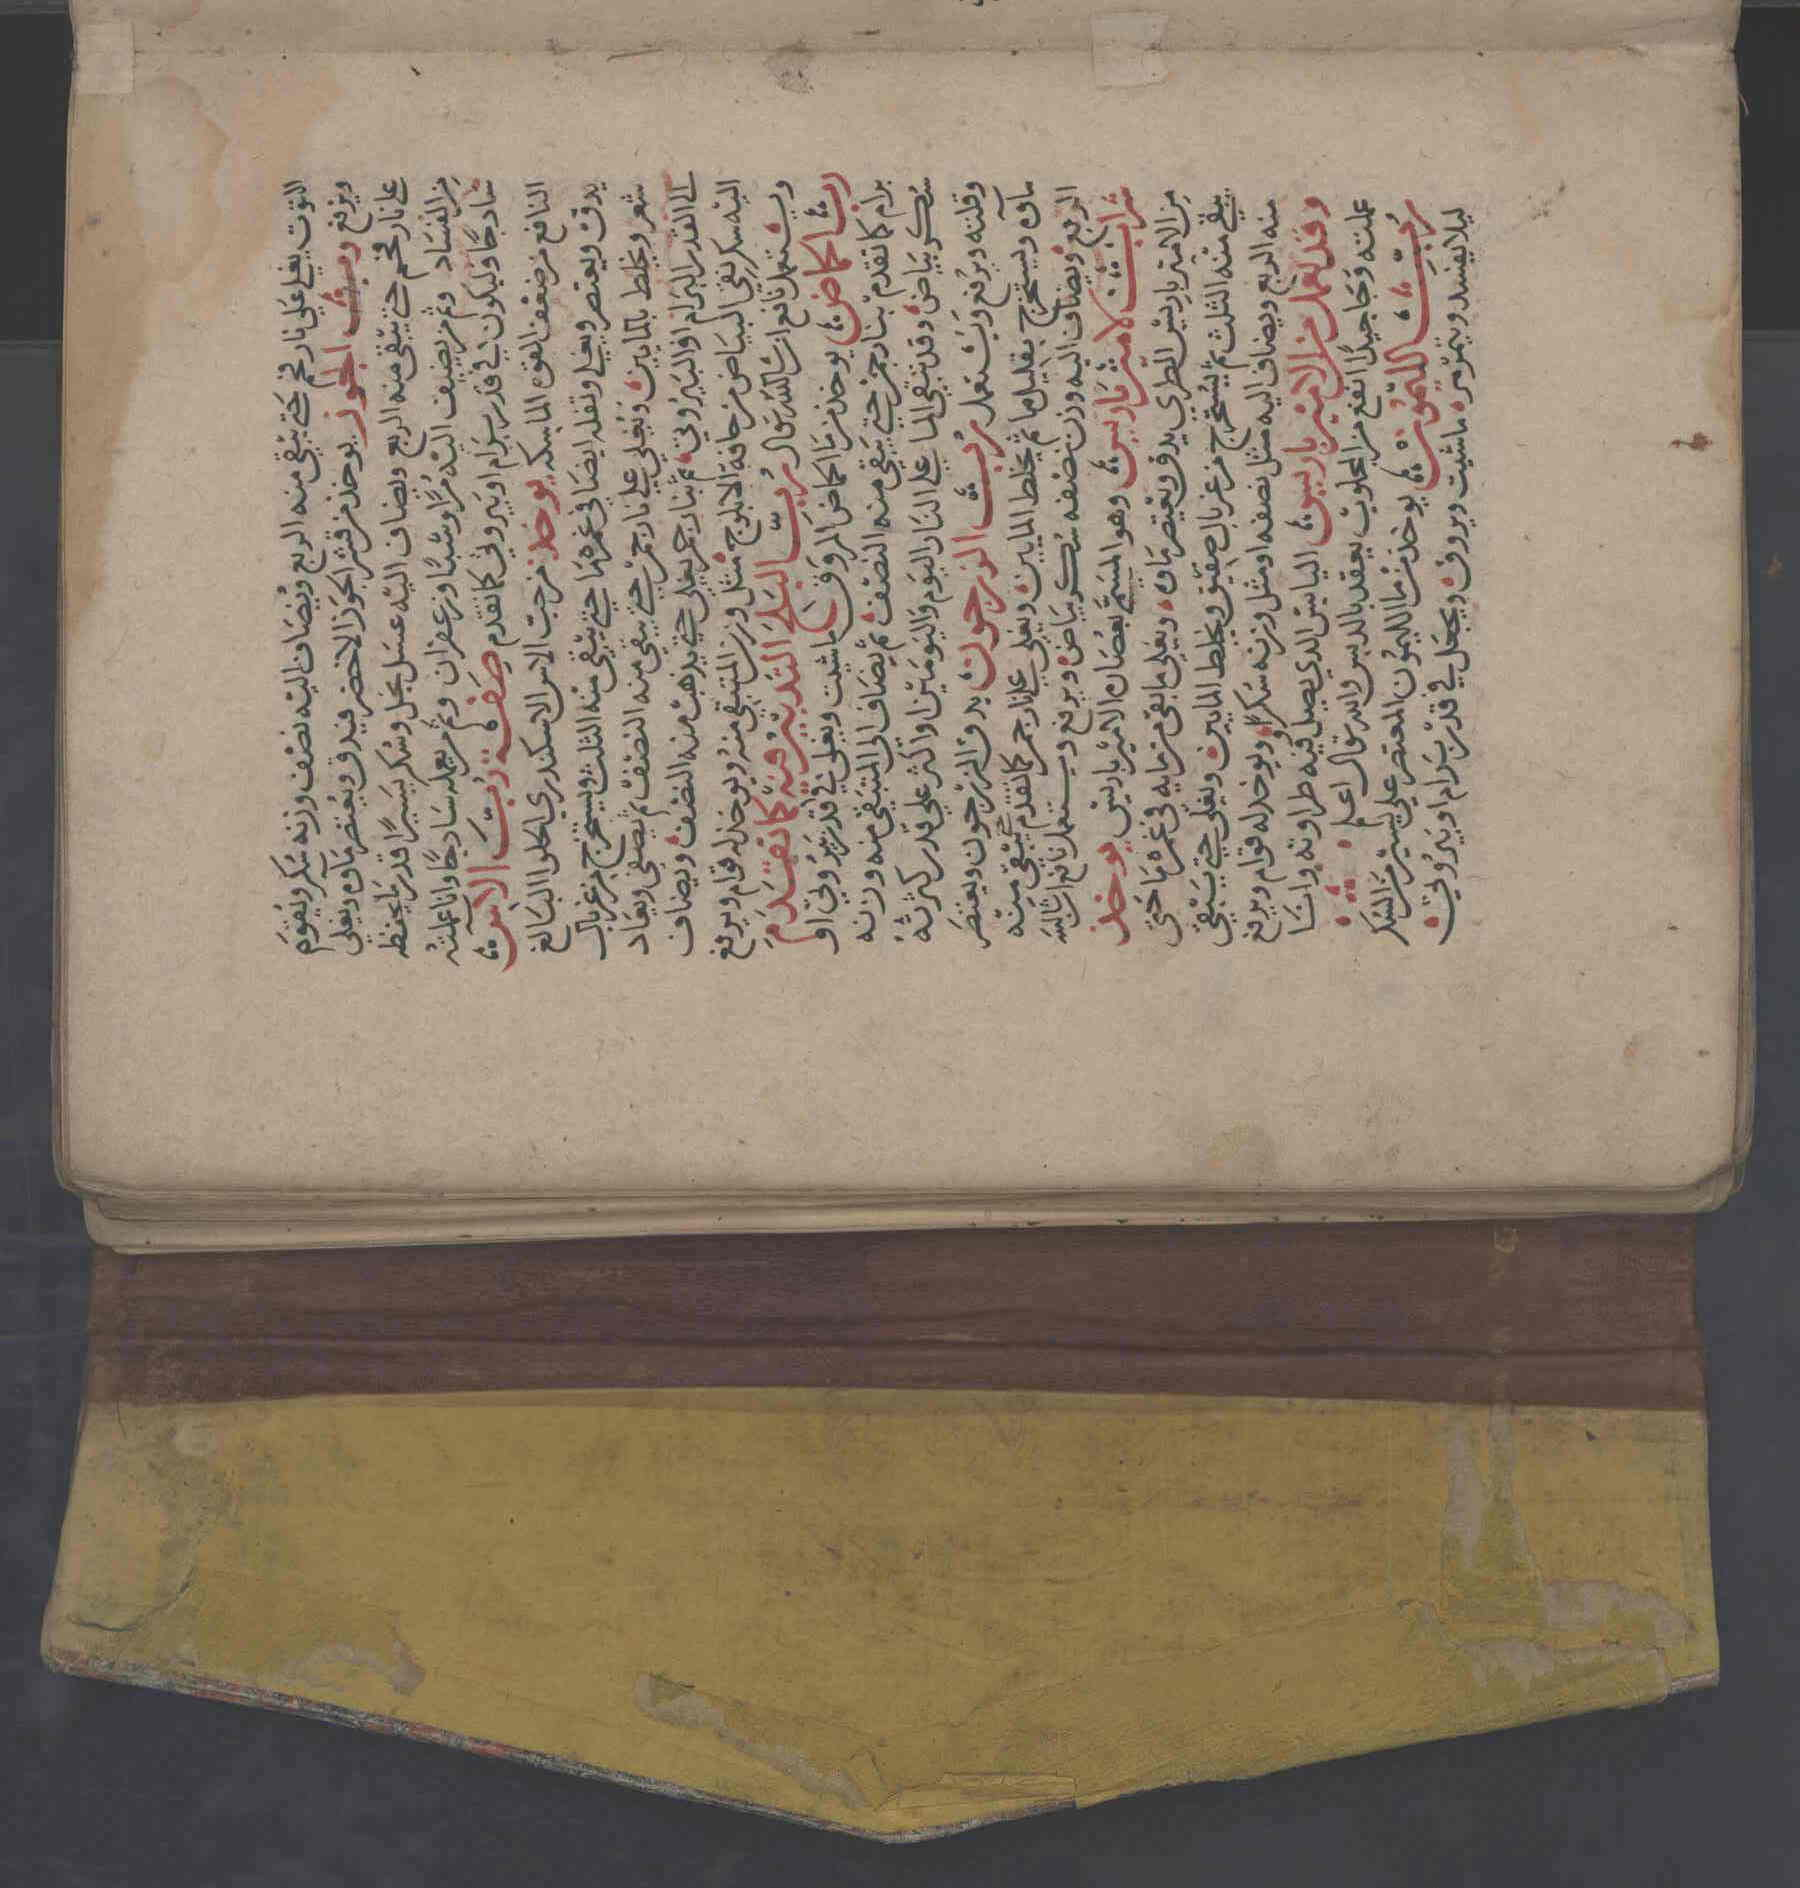 التوت يغلي على نار فحم حتى يبقى منه الربع ويضاف اليه نصف وزنه سكر ويقوم
ويرفع رب الجوز يوخذ من قشر الجوز الاخضر فيدق ويعتصر ماوه ويغلي
على نار فحم حتى يبقى منه الربع ويضاف اليه عسل نحل وسكر يسيرا قدر ما يحفظه
من الفساد وثم من يضيف اليه مرا وشبا وزعفران وثم من يعمله سادجا وانا عملته
سادجا وليكون في قدر برام او بيروتي كما تقدم صفة رب الاس
النافع من ضعف القوه الماسكه يوخذ من حب الاس الاسكندري الحلو البالغ
يدق ويعتصر ويغلي وتفله ايضا في غمره ما حتى يبقى منه الثلث ويستخرج من غربال
شعر ويخلط بالمايين ويغلي على نار جمر حتى يبقى منه النصف ثم يصفى ويعاد
الى القدر البرام او البيروتي ثم بنار جمر يغلي حتى يذهب منه النصف ويضاف
اليه سكر نقي البياض من حافة الابلوج مثل وزن المتبقي منه ويوخذ له قوام ويرفع
ويستعمل نافع ان شا الله تعالى رب البلح التدبير فيه كما تقدم
رب الحماض يوخذ من ما الحماض المروق ما شيت ويغلي في قدر بيروتي او
برام كما تقدم بنار جمر حتى يبقى منه النصف ثم يضاف الى المتبقي منه وزنه
سكر بياض وقد يبقى الما على النار اليوم واليومين او اكثر على قدر كثرته
وقلته ويرفع ويستعمل رب الزرجون يدق الزرجون ويعتصر
ماوه ويستخرج بقليل ما ثم يخلط المايين ويغلي على نار جمر كما تقدم حتى يبقى منه
الربع ويضاف اليه وزن نصفه سكر بياض ويرفع ويستعمل نافع ان شا الله
شراب الامير باريس وهو المسمى بعصاره الامير باريس يوخذ
من الامير باريس الطري يدق ويعتصر ماوه ويغلي ما بقي من مايه في غمره ما حتى
يبقى منه الثلث ثم يستخرج من غربال صفيق ويخلط المايين ويغلي حتى يبقى
منه الربع ويضاف اليه مثل نصفه او مثل وزنه سكرا ويوخذ له قوام ويرفع
وقد تعمل من الامير باريس اليابس الذي يصل فيه طراوته وانا
عملته وجا جيدا انفع من المجلوب يعقد بالدبس والله تعالى اعلم
رب الليمون يوخذ من ما الليمون المعتصر على يسير من السكر
ليلا يفسد ويتمرمر ما شيت ويروق ويجعل في قدر برام او بيروتي